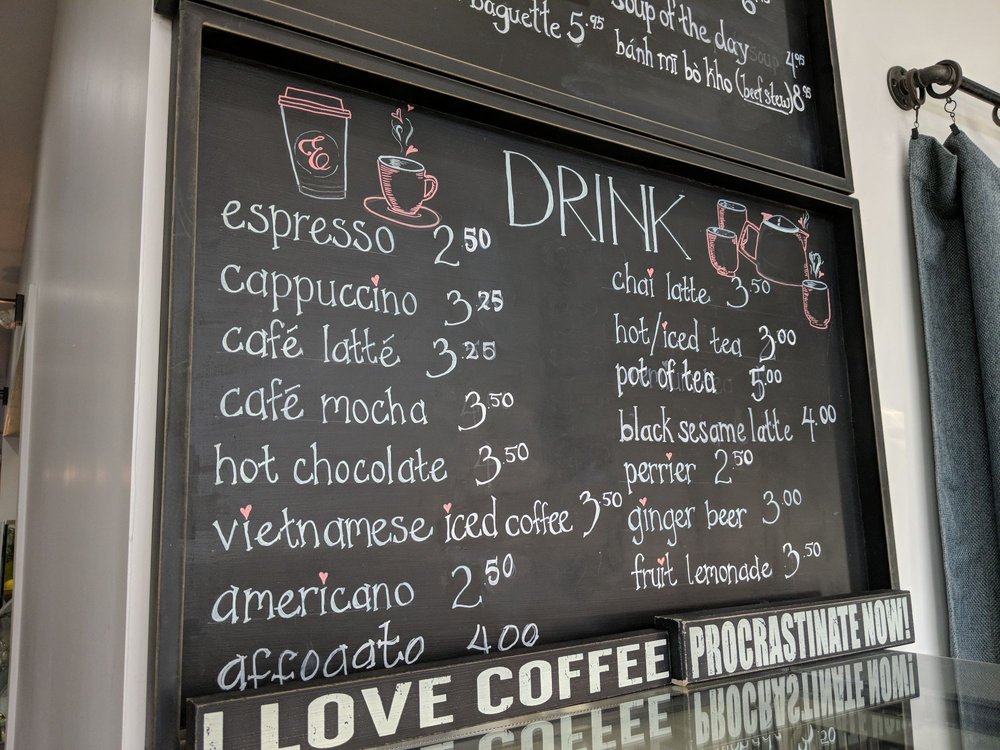 baguette 5.95
soup of the day 4.95
bánh mì bò kho (beef stew) 8.95
DRINK
espresso 2.50
cappuccino 3.25
café latté 3.25
café mocha 3.50
hot chocolate 3.50
vietnamese iced coffee 3.50
americano 2.50
affogato 4.00
chai latte 3.50
hot/iced tea 3.00
pot of tea 5.00
black sesame latte 4.00
perrier 2.50
ginger beer 3.00
fruit lemonade 3.50
I LOVE COFFEE
PROCRASTINATE NOW!